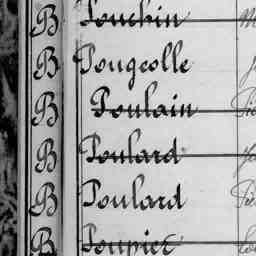 B Pouchin
B Pougeolle
B Poulain
B Poulard
B Poulard
B Poupier